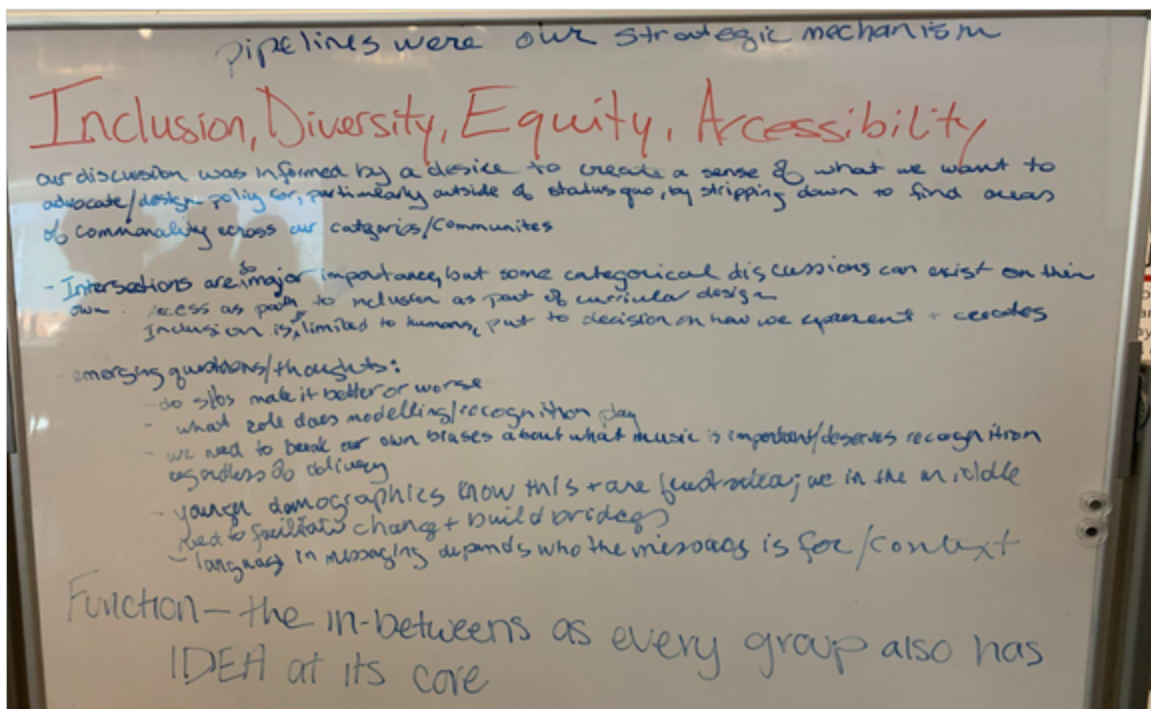 pipelines were our strategic mechanism
Inclusion, Diversity, Equity, Accessibility
our discussion was informed by a desire to create a sense of what we want to
advocate/design policy for, particularly outside of status quo, by stripping down to find areas
of commonality across our categories/communites
- Intersections are so major importance, but some categorical discussions can exist on their
own: Access as path to inclusion as part of curricular design
Inclusion is limited to humans, put to decision on how we represent +
- emerging questions/thoughts:
- do silos make it better or worse
- what role does modelling/recognition play
- we need to break our own biases about what music is important/deserves recognition
regardless of delivery
- younger demographics know this + are ; we in the middle
need to facilitate change + build bridges
- language in messaging depends who the message is for/context
Function - the in-betweens as every group also has
IDEA at its core